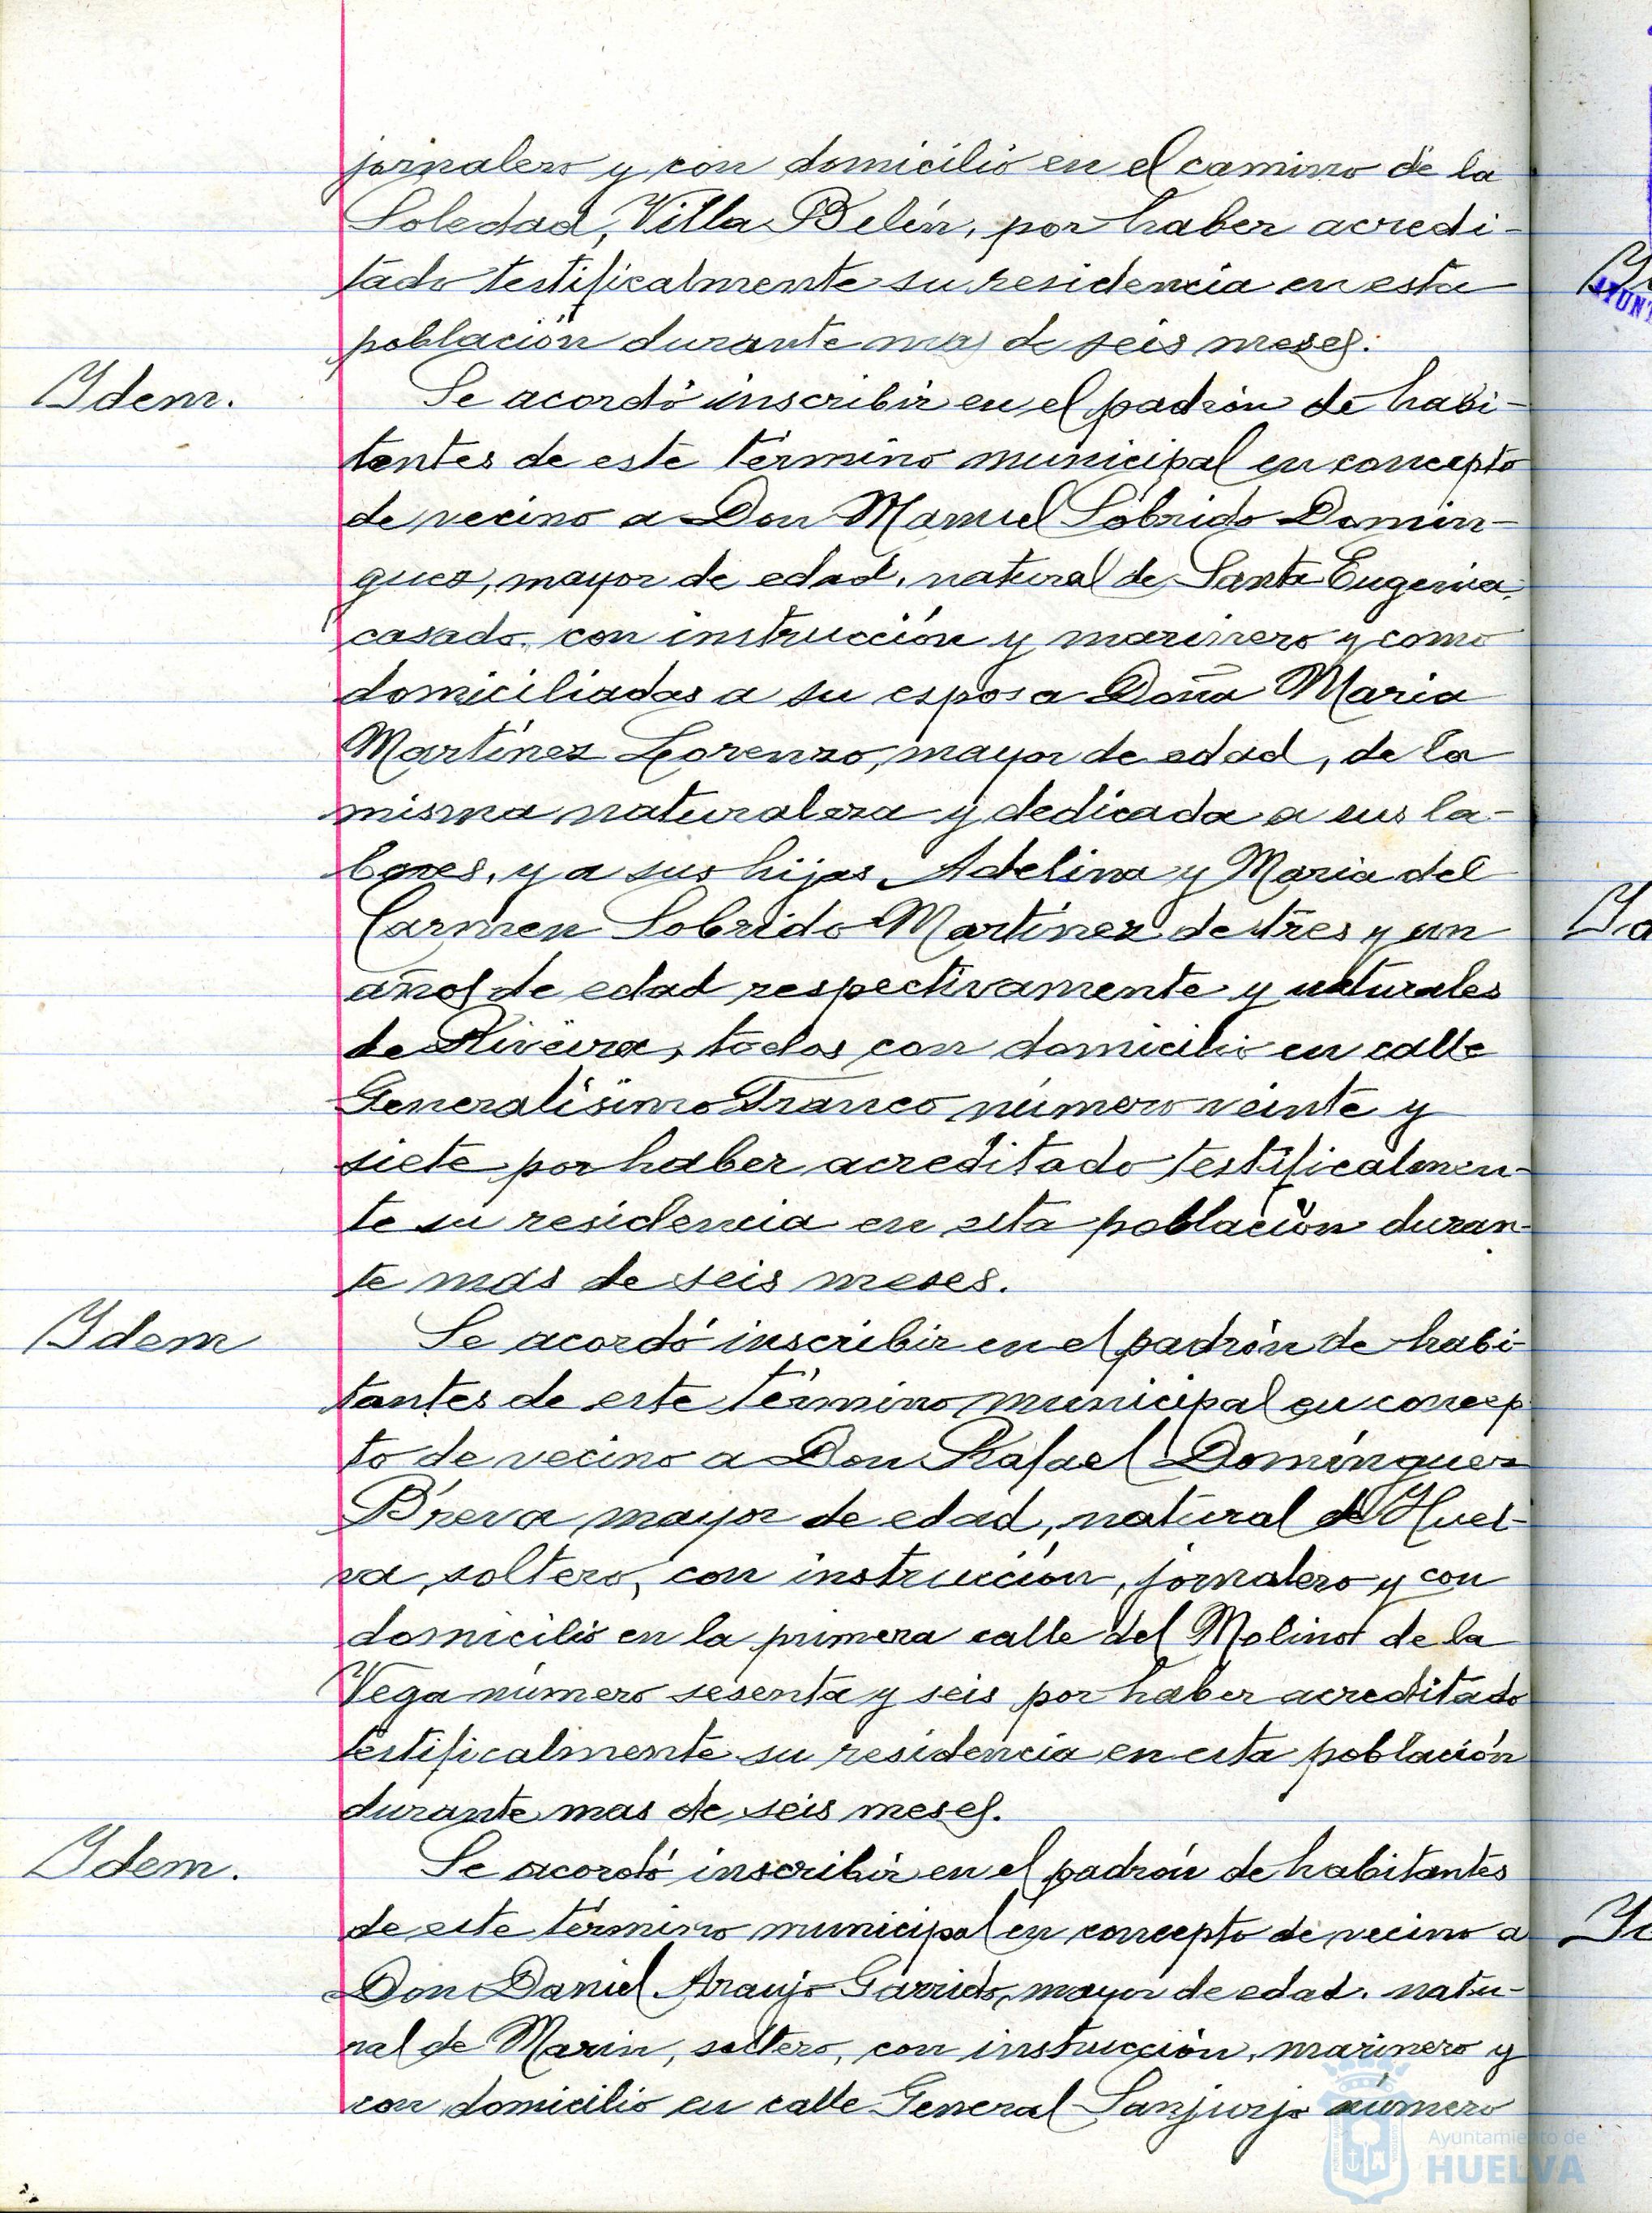 jornalero y con domicilio en el camino de la
Soledad, Villa Belén, por haber acredi-
tado testificalmente su residencia en esta
población durante mas de seis meses.
Idem.
Se acordó inscribir en el padrón de habi-
tantes de este término municipal en concepto
de vecino a Don Manuel Sóbrido Domín-
guez, mayor de edad, natural de Santa Eugenia,
casado, con instrucción y marinero y como
domiciliadas a su esposa Doña Maria
Martínez Lorenzo, mayor de edad, de la
misma naturaleza y dedicada a sus la-
bores, y a sus hijas Adelina y Maria del
Carmen Sobrido Martínez de tres y un
años de edad respectivamente y naturales
de Riveira, todos con domicilio en calle
Generalísimo Franco número veinte y
siete por haber acreditado testificalmen-
te su residencia en esta población duran-
te mas de seis meses.
Idem
Se acordó inscribir en el padrón de habi-
tantes de este término municipal en concep
to de vecino a Don Rafael Domínguez
Breva mayor de edad, natural de Huel-
va, soltero, con instrucción, jornalero y con
domicilio en la primera calle del Molino de la
Vega número sesenta y seis por haber acreditado
testificalmente su residencia en esta población
durante mas de seis meses.
Idem.
Se acordó inscribir en el padrón de habitantes
de este término municipal en concepto de vecino a
Don Daniel Araujo Garrido, mayor de edad, natu-
ral de Marin, soltero, con instrucción, marinero y
con domicilio en calle General Sanjurjo número
Ayuntamiento de
HUELVA